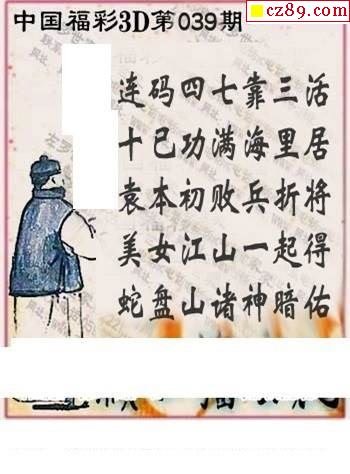 cz89.com
中国福彩3D第039期
连码四七靠三活
十已功满海里居
袁本初败兵折将
美女江山一起得
蛇盘山诸神暗佑